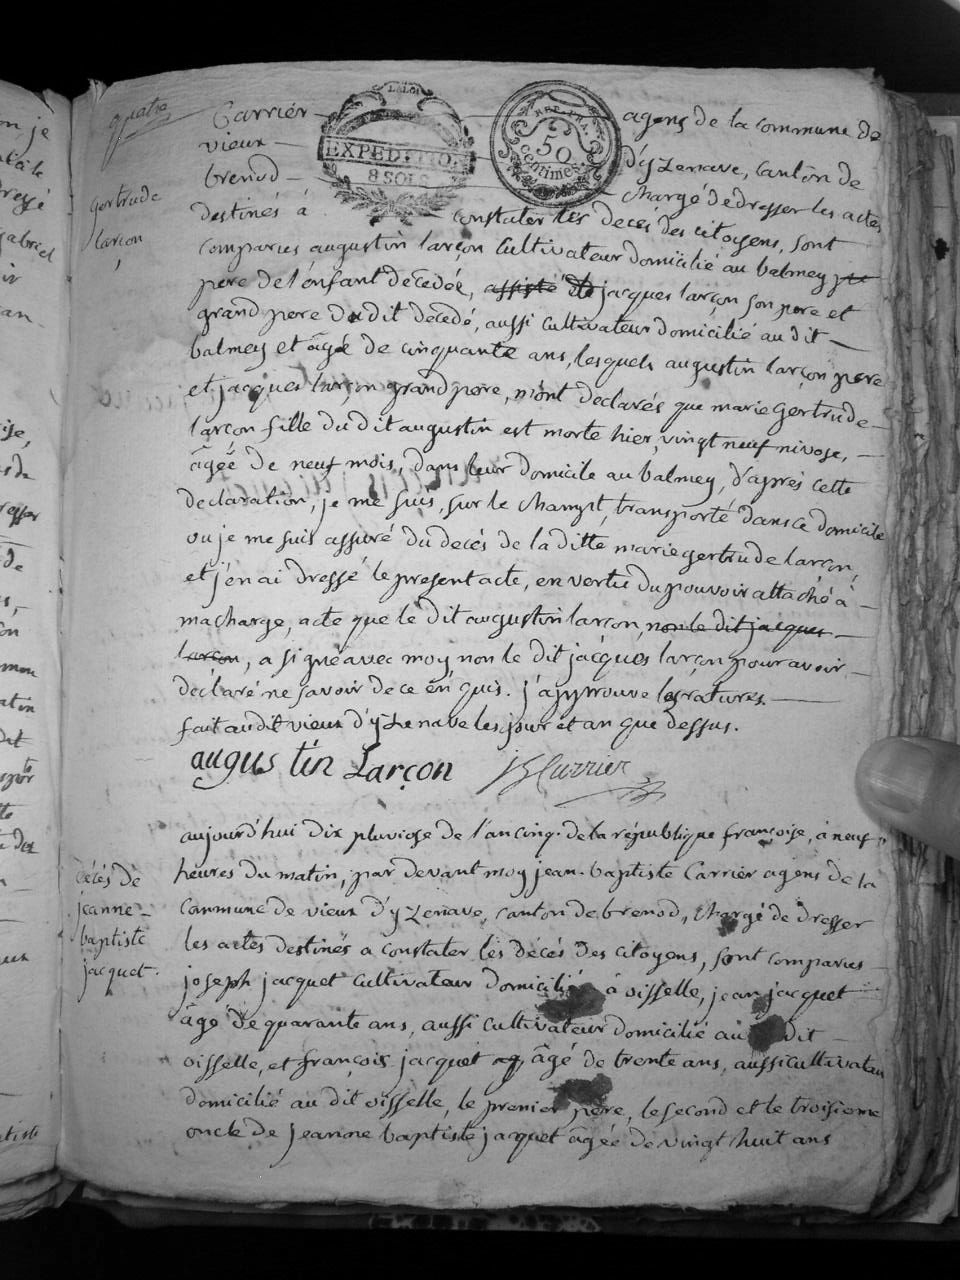 quatre
Carrier agens de la commune de
vieux d'yzenave, canton de
brenod chargé de dresser les actes
destinés à constater les decés des citoyens, sont
LA LOI
EXPEDITIO.
8 SOLS
REP. FRA.
50
centimes
gertrude
larçon
comparus augustin larçon Cultivateur domicilié au balmey
pere de l'enfant decedée, assisté de jacques larçon son pere et
grand pere du dit decedé, aussi cultivateur domicilié au dit
balmey et âgé de cinquante ans, lesquels augustin larçon pere
et jacques larçon grand pere, m'ont declarés que marie gertrude
larçon fille du dit augustin est morte hier, vingt neuf nivose,
âgée de neuf mois, dans leur domicile au balmey, d'après cette
declaration, je me suis, sur le champt, transporté dans ce domicile
ou je me suis assuré du decés de la ditte marie gertrude larçon,
et j'en ai dressé le present acte, en vertu du pouvoir attaché à
ma charge, acte que le dit augustin larçon, non le dit jacques
larçon, a signé avec moy non le dit jacques larçon pour avoir
declaré ne savoir de ce en quis. j'approuve les ratures.
fait au dit vieux d'yzenave les jour et an que dessus.
augustin Larçon jB Carrier
aujourd'hui dix pluviose de l'an cinq. de la république françoise, à neuf
heures du matin, par devant moy jean-baptiste Carrier agens de la
commune de vieux d'yzenave, canton de brenod, chargé de dresser
les actes destinés a constater les décés des citoyens, sont comparus
joseph jacquet cultivateur domicilié à oisselle, jean jacquet
âgé de quarante ans, aussi cultivateur domicilié au dit
oisselle, et françois jacquet âgé de trente ans, aussi cultivateur
domicilié au dit oisselle, le premier pere, le second et le troisieme
oncle de jeanne baptiste jacquet âgée de vingt huit ans
décés de
jeanne
baptiste
jacquet.